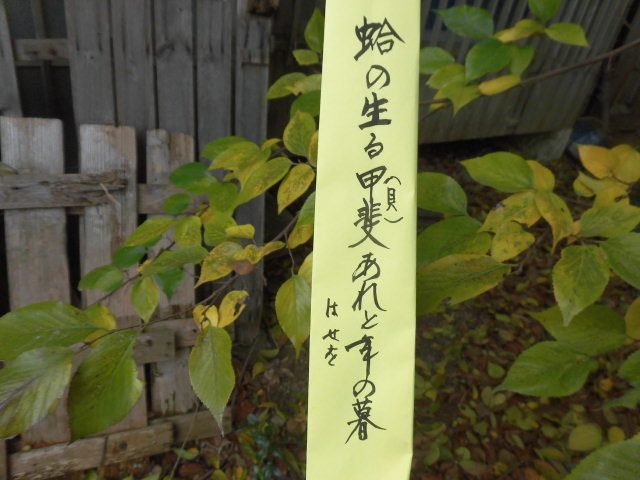 蛤の生る甲斐(貝)あれと年の暮
はせを